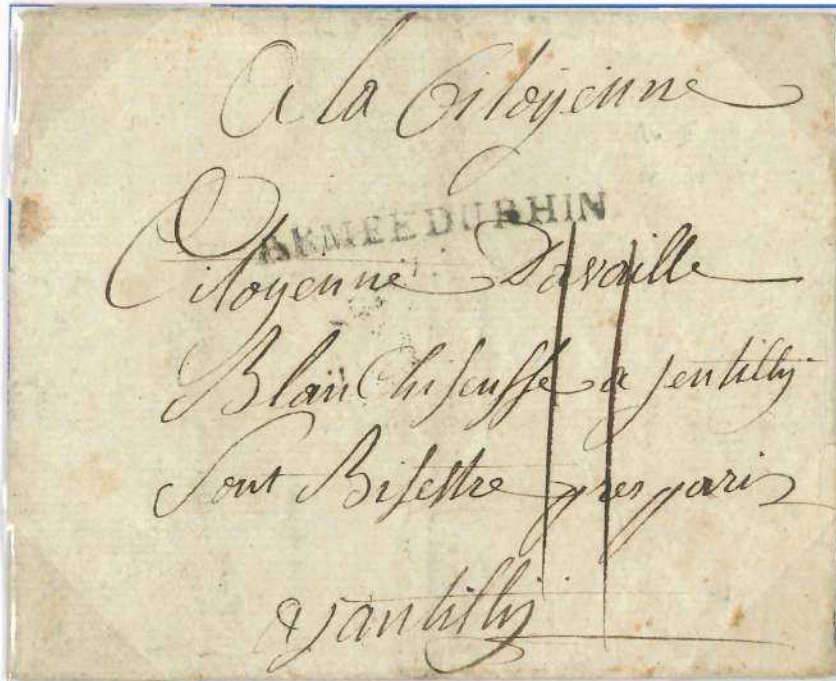 A la Citoyenne
ARMEE DU RHIN
Citoyenne Davaille
Blanchiseusse a jentilly
Sout Bisettre pres paris
a jantilly